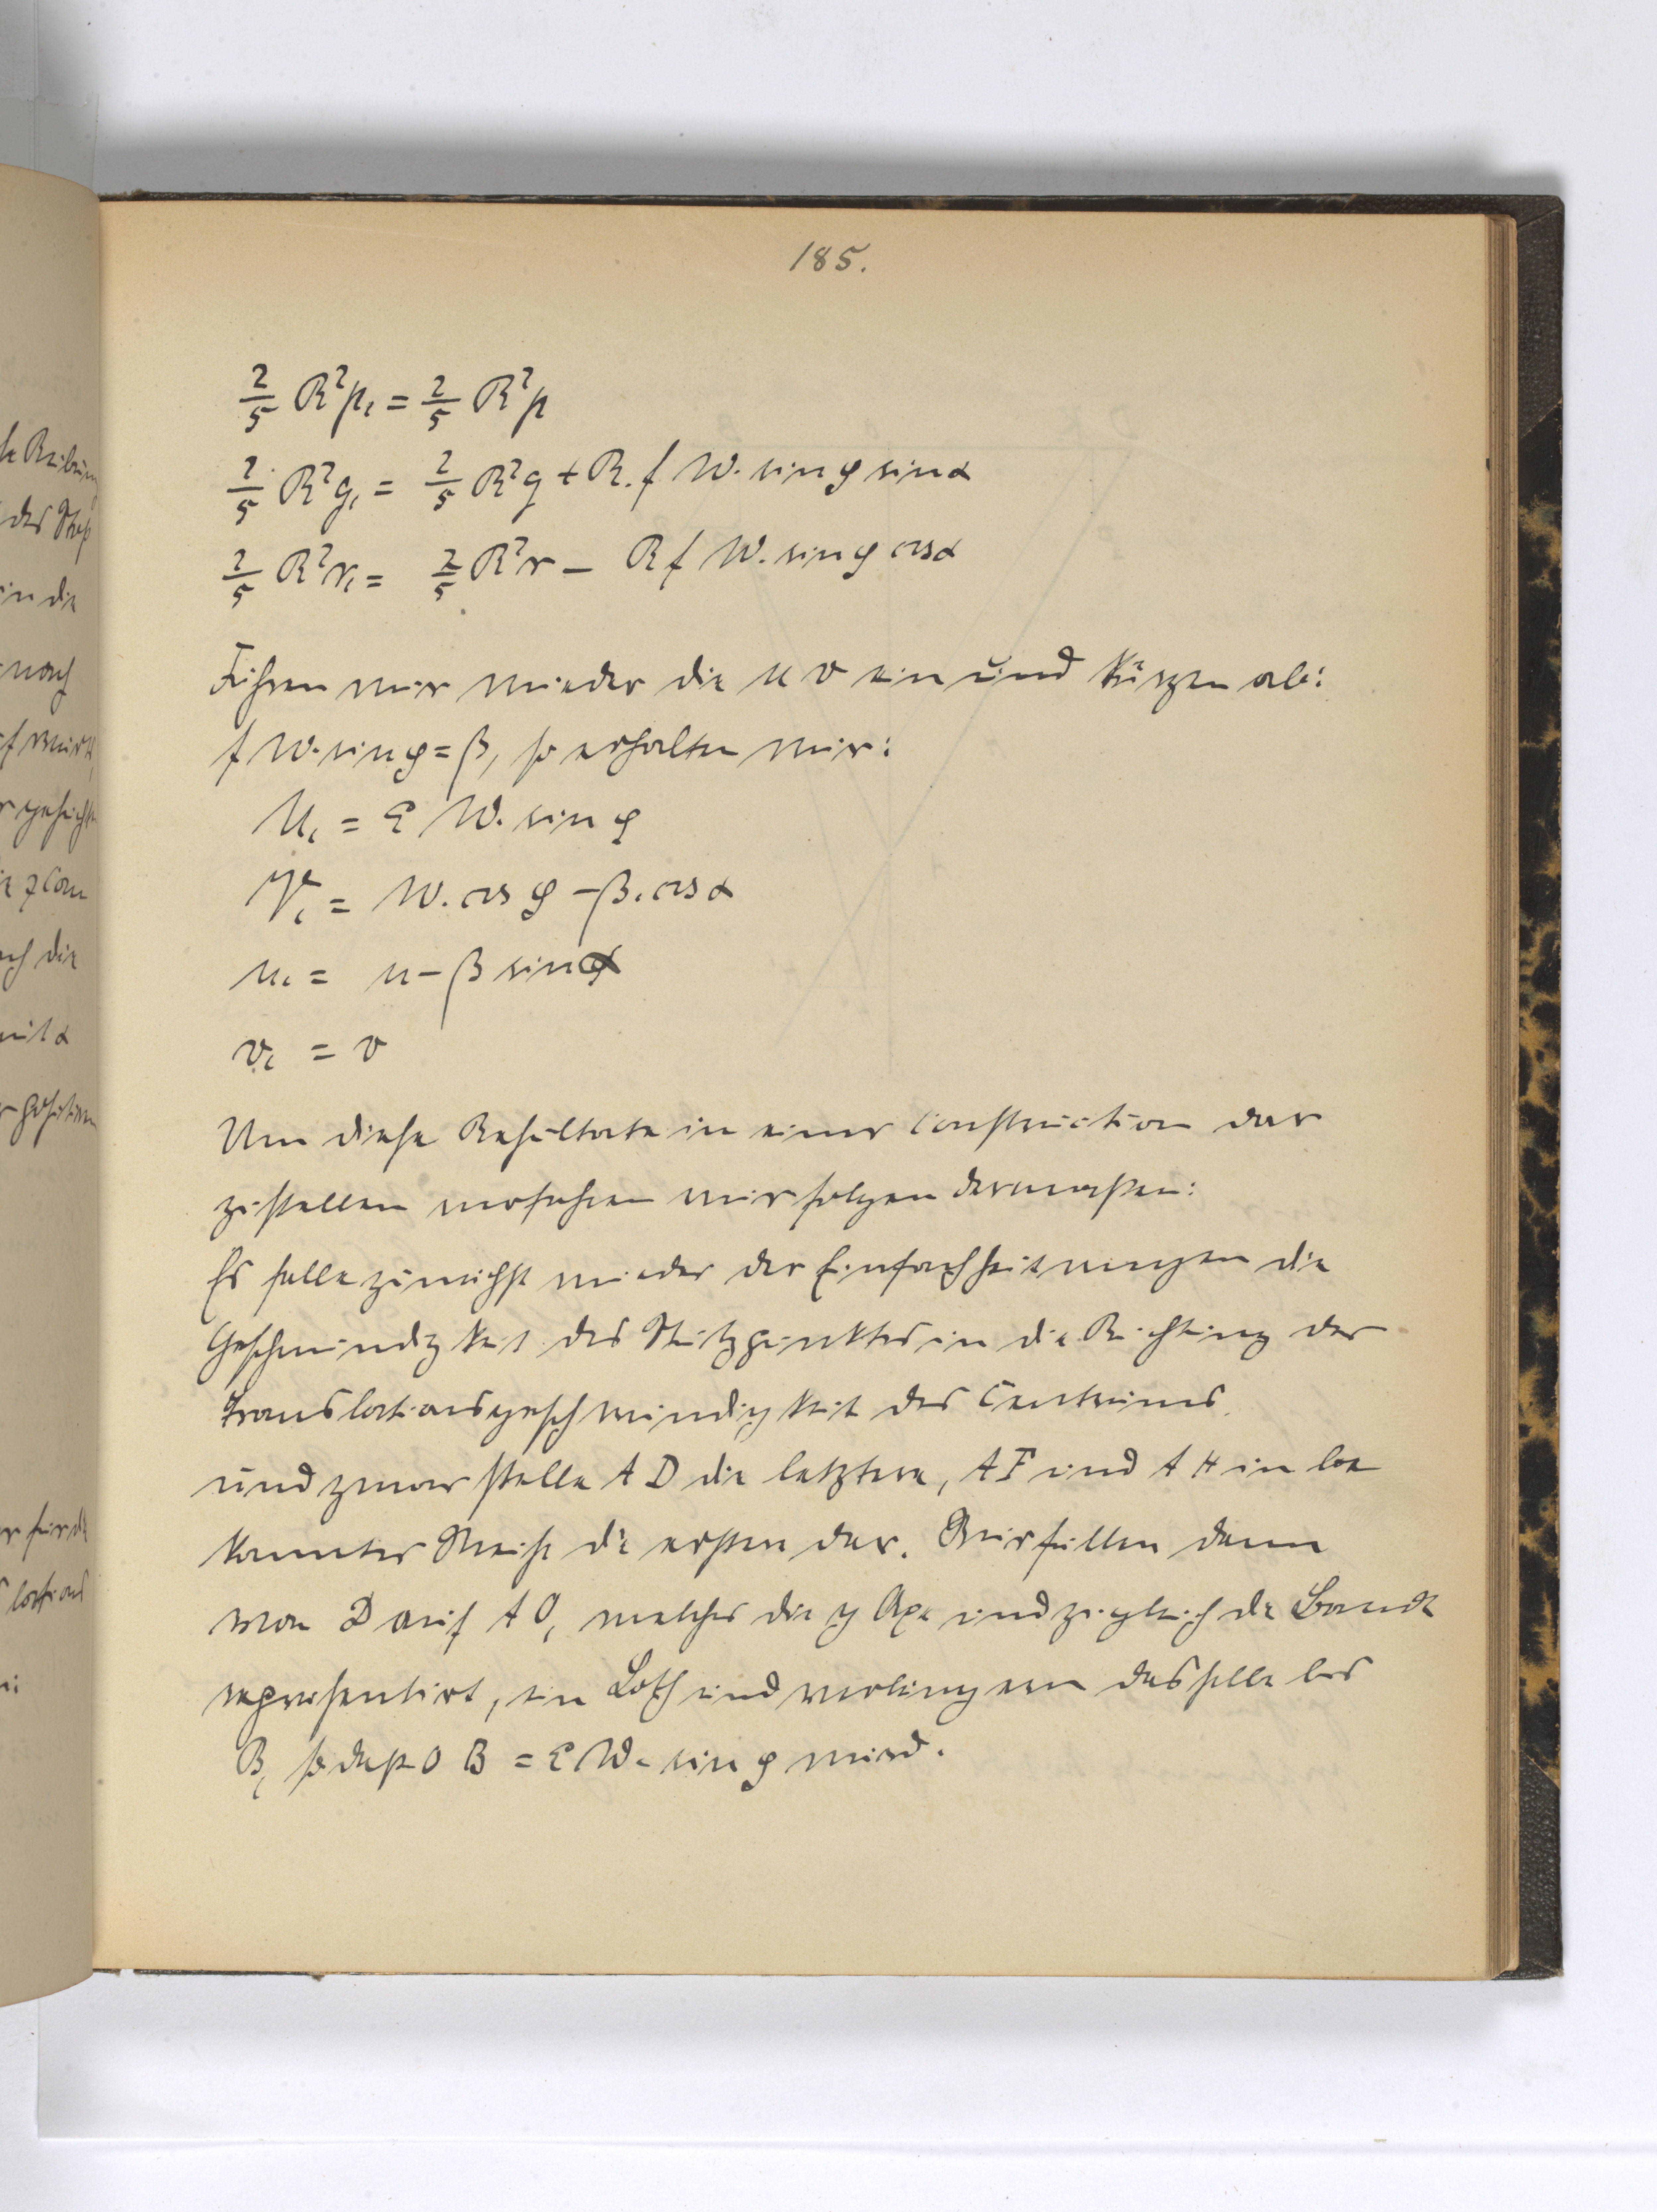 185.
2/5 R²p₁ = 2/5 R²p
2/5 R²q₁ = 2/5 R²q + R. f W. sin φ sin α
2/5 R²r₁ = 2/5 R²r – R f W. sin φ cos α
Führen wir wieder die u v ein und kürzen ab:
f W. sin φ = β, so erhalten wir:
U₁ = ε W. sin φ
V₁ = W. cos φ – β. cos α
u₁ = u – β sin α
v₁ = v
Um diese Resultate in einer Construction dar
zustellen verfahren wir folgen dermaßen:
Es falle zunächst wieder der Einfachheit wegen die
Geschwindigkeit des Stützpunktes in die Richtung der
Translationsgeschwindigkeit des Centrums
und zwar stelle A D die letztere, A F und A H in be
kannter Weise die erstere dar. Wir fällen dann
von D auf A O, welches die y Axe und zugleich die Bande
repraesentirt, ein Loth und verlängern dasselbe bis
B, so daß O B = ε W. sin φ wird.